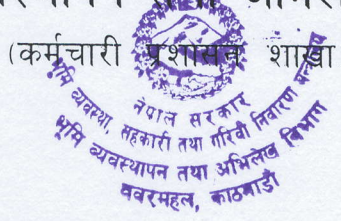 (कर्मचारी प्रशासन शाखा
नेपाल सरकार
भूमि व्यवस्था, सहकारी तथा गरिवी निवारण मन्त्रालय
भूमि व्यवस्थापन तथा अभिलेख विभाग
बबरमहल, काठमाडौं